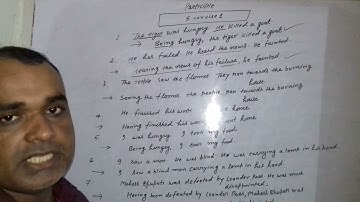 Participle
Exercise 1
1. The tiger was hungry. He killed a goat.
→ Being hungry, the tiger killed a goat ✓
2. He has failed. He heard the news. He fainted.
→ Hearing the news of his failure, he fainted ✓
3. The people saw the flames. They ran towards the burning
house
→ Seeing the flames the people ran towards the burning
house
4. He finished his work home
→ Having finished his home
5. I was hungry. I took my food.
→ Being hungry, I took my food.
6. I saw a man. He was blind. He was carrying a lamp in his hand.
→ I saw a blind man carrying a lamp in his hand.
7. Mahesh Bhupati was defeated by Leander Paes. He was much
disappointed.
→ Having been defeated by Leander Paes, Mahesh Bhupati was